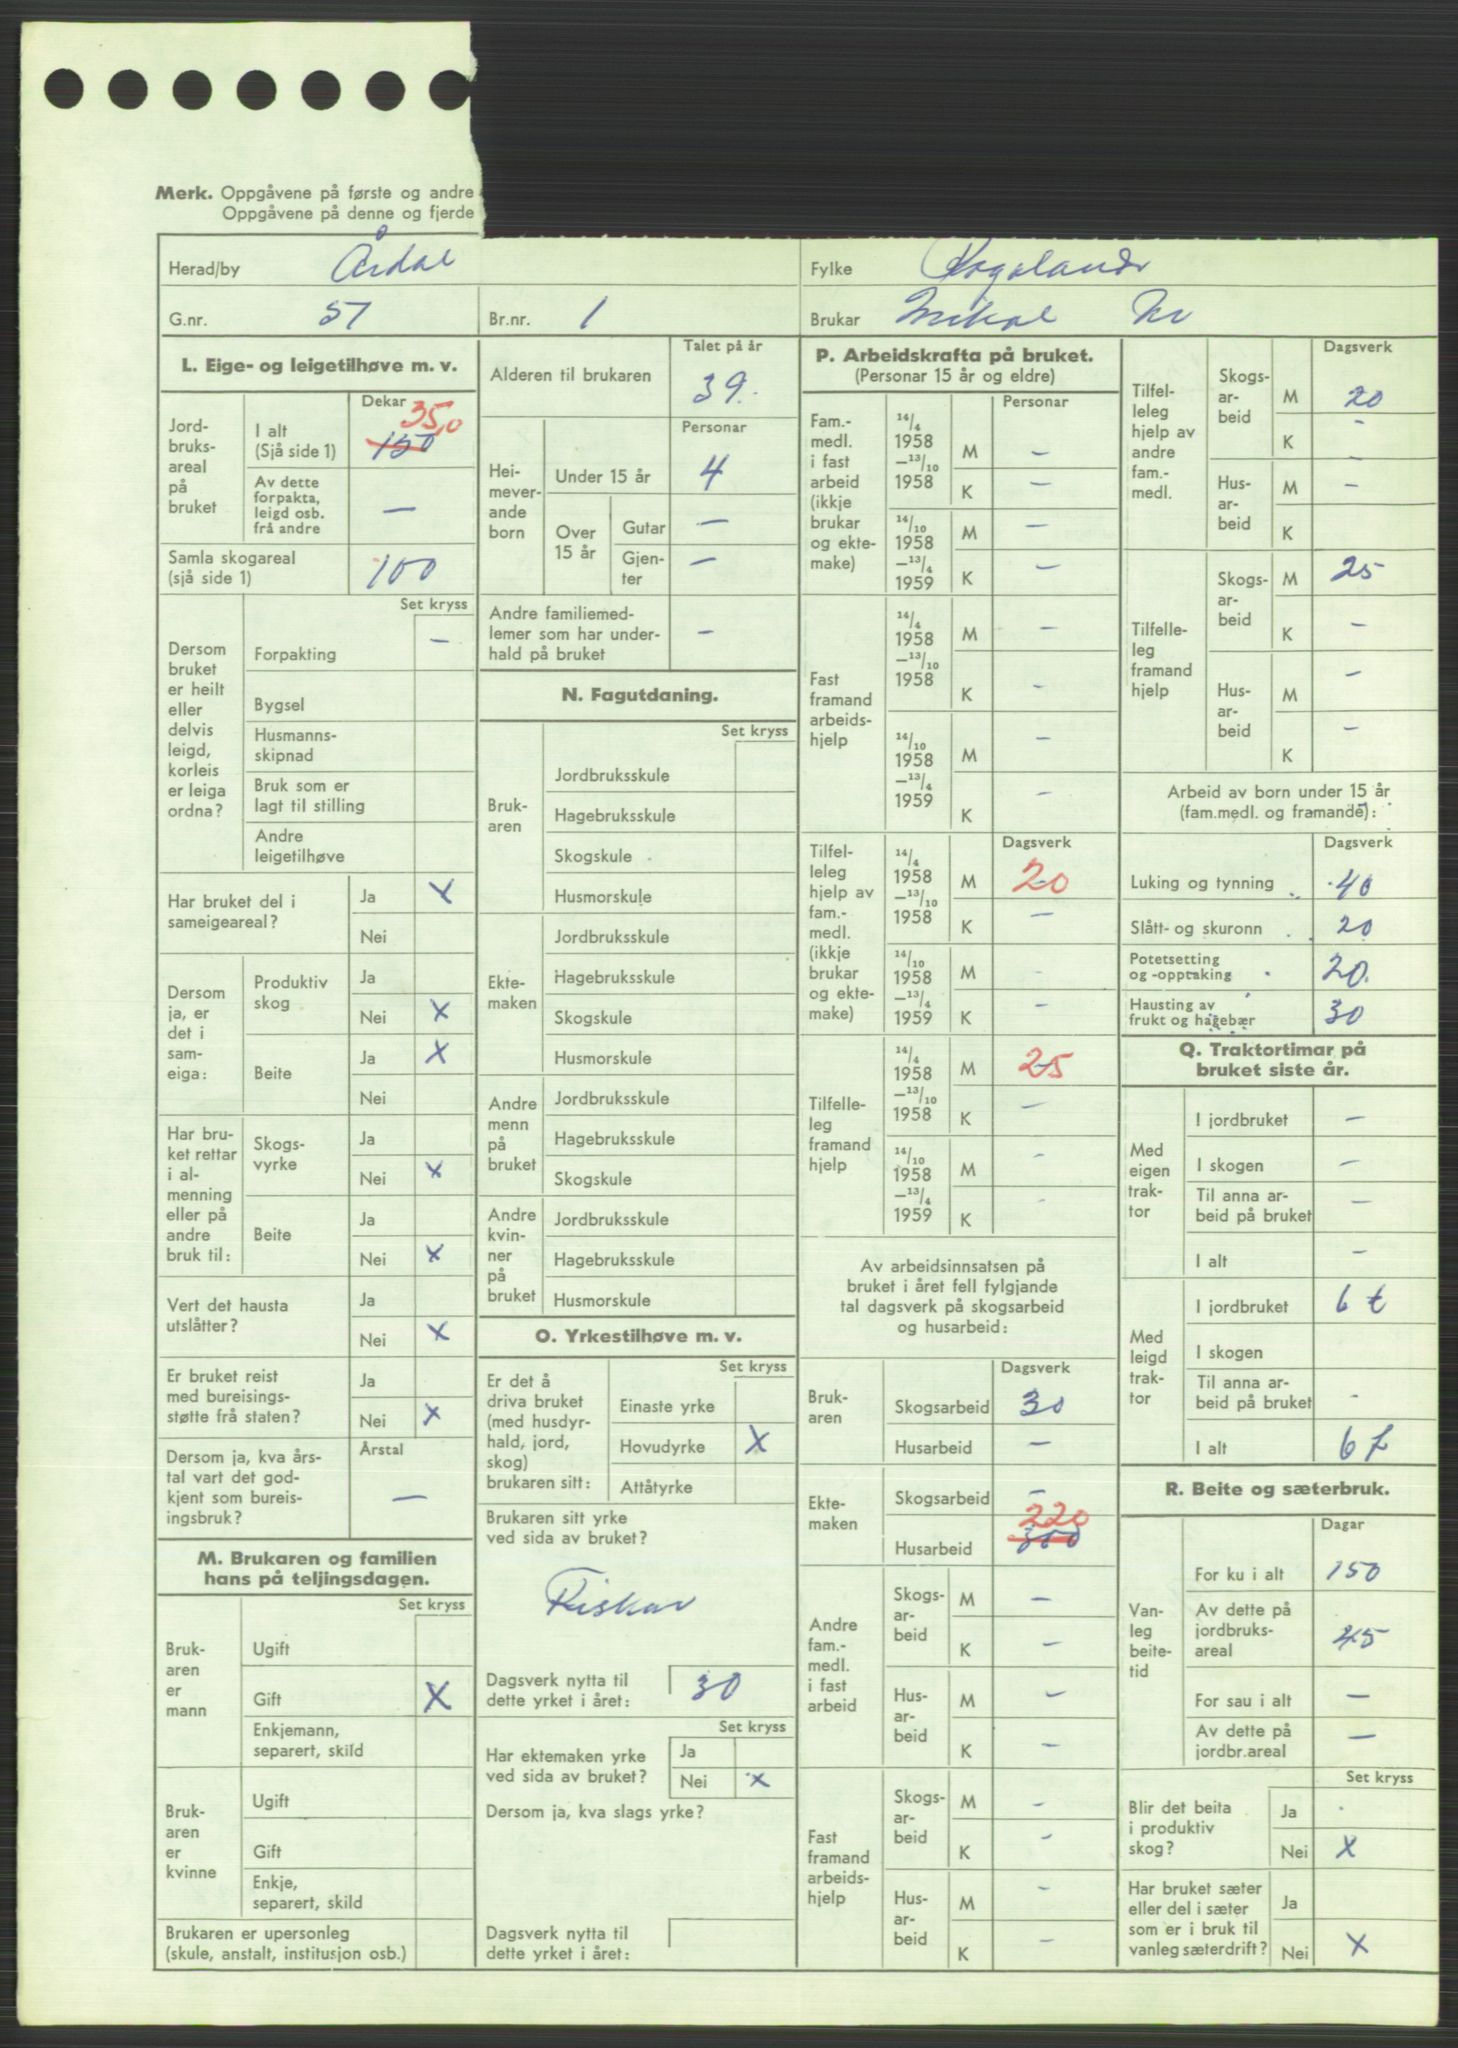 Merk. Oppgåvene på første og andre
Oppgåvene på denne og fjerde
Herad/by Årdal
Fylke Rogaland
G.nr. 57
Br.nr. 1
Brukar Mikal
L. Eige- og leigetilhøve m. v.
Dekar
Jord-
bruks-
areal
på
bruket
I alt
(Sjå side 1)
35,0
150
Av dette
forpakta,
leigd osb.
frå andre
—
Samla skogareal
(sjå side 1)
100
Set kryss
Dersom
bruket
er heilt
eller
delvis
leigd,
korleis
er leiga
ordna?
Forpakting —
Bygsel
Husmanns-
skipnad
Bruk som er
lagt til stilling
Andre
leigetilhøve
Har bruket del i
sameigeareal?
Ja X
Nei
Dersom
ja, er
det i
sam-
eiga:
Produktiv
skog
Ja
Nei X
Beite
Ja X
Nei
Har bru-
ket rettar
i al-
menning
eller på
andre
bruk til:
Skogs-
vyrke
Ja
Nei X
Beite
Ja
Nei X
Vert det hausta
utslåtter?
Ja
Nei X
Er bruket reist
med bureisings-
støtte frå staten?
Ja
Nei X
Dersom ja, kva års-
tal vart det god-
kjent som bureis-
ingsbruk?
Årstal
—
M. Brukaren og familien
hans på teljingsdagen.
Set kryss
Bruk-
aren
er
mann
Ugift
Gift X
Enkjemann,
separert, skild
Bruk-
aren
er
kvinne
Ugift
Gift
Enkje,
separert, skild
Brukaren er upersonleg
(skule, anstalt, institusjon osb.)
Talet på år
Alderen til brukaren 39.
Personar
Hei-
mever-
ande
born
Under 15 år 4
Over
15 år
Gutar —
Gjen-
ter —
Andre familiemed-
lemer som har under-
hald på bruket
—
N. Fagutdaning.
Set kryss
Bruk-
aren
Jordbruksskule
Hagebruksskule
Skogskule
Husmorskule
Ekte-
maken
Jordbruksskule
Hagebruksskule
Skogskule
Husmorskule
Andre
menn
på
bruket
Jordbruksskule
Hagebruksskule
Skogskule
Andre
kvin-
ner
på
bruket
Jordbruksskule
Hagebruksskule
Husmorskule
O. Yrkestilhøve m. v.
Set kryss
Er det å
driva bruket
(med husdyr-
hald, jord,
skog)
brukaren sitt:
Einaste yrke
Hovudyrke X
Attåtyrke
Brukaren sitt yrke
ved sida av bruket?
Fiskar
Dagsverk nytta til
dette yrket i året: 30
Set kryss
Har ektemaken yrke
ved sida av bruket?
Ja
Nei X
Dersom ja, kva slags yrke?
Dagsverk nytta til
dette yrket i året:
P. Arbeidskrafta på bruket.
(Personar 15 år og eldre)
Personar
Fam.-
medl.
i fast
arbeid
(ikkje
brukar
og ekte-
make)
14/4
1958
—13/10
1958
M —
K —
14/10
1958
—13/4
1959
M —
K —
Fast
framand
arbeids-
hjelp
14/4
1958
—13/10
1958
M —
K —
14/10
1958
—13/4
1959
M —
K —
Dagsverk
Tilfel-
leleg
hjelp av
fam.-
medl.
(ikkje
brukar
og ekte-
make)
14/4
1958
—13/10
1958
M 20
K —
14/10
1958
—13/4
1959
M —
K —
Tilfelle-
leg
framand
hjelp
14/4
1958
—13/10
1958
M 25
K —
14/10
1958
—13/4
1959
M —
K -
Av arbeidsinnsatsen på
bruket i året fell fylgjande
tal dagsverk på skogsarbeid
og husarbeid:
Dagsverk
Bruk-
aren
Skogsarbeid 30
Husarbeid —
Ekte-
maken
Skogsarbeid —
Husarbeid 220
300
Andre
fam.-
medl.
i fast
arbeid
Skogs-
ar-
beid
M —
K —
Hus-
ar-
beid
M —
K —
Fast
framand
arbeids-
hjelp
Skogs-
ar-
beid
M —
K —
Hus-
ar-
beid
M —
K —
Dagsverk
Tilfel-
leleg
hjelp av
andre
fam.-
medl.
Skogs-
ar-
beid
M 20
K —
Hus-
ar-
beid
M —
K
Tilfelle-
leg
framand
hjelp
Skogs-
ar-
beid
M 25
K —
Hus-
ar-
beid
M —
K —
Arbeid av born under 15 år
(fam.medl. og framande):
Dagsverk
Luking og tynning 40
Slått- og skuronn 20
Potetsetting
og -opptaking 20.
Hausting av
frukt og hagebær 30
Q. Traktortimar på
bruket siste år.
Med
eigen
trak-
tor
I jordbruket —
I skogen —
Til anna ar-
beid på bruket —
I alt —
Med
leigd
trak-
tor
I jordbruket 6 t
I skogen
Til anna ar-
beid på bruket -
I alt 6 t
R. Beite og sæterbruk.
Dagar
Van-
leg
beite-
tid
For ku i alt 150
Av dette på
jordbruks-
areal 45
For sau i alt —
Av dette på
jordbr.areal —
Set kryss
Blir det beita
i produktiv
skog?
Ja
Nei X
Har bruket sæter
eller del i sæter
som er i bruk til
vanleg sæterdrift?
Ja
Nei X